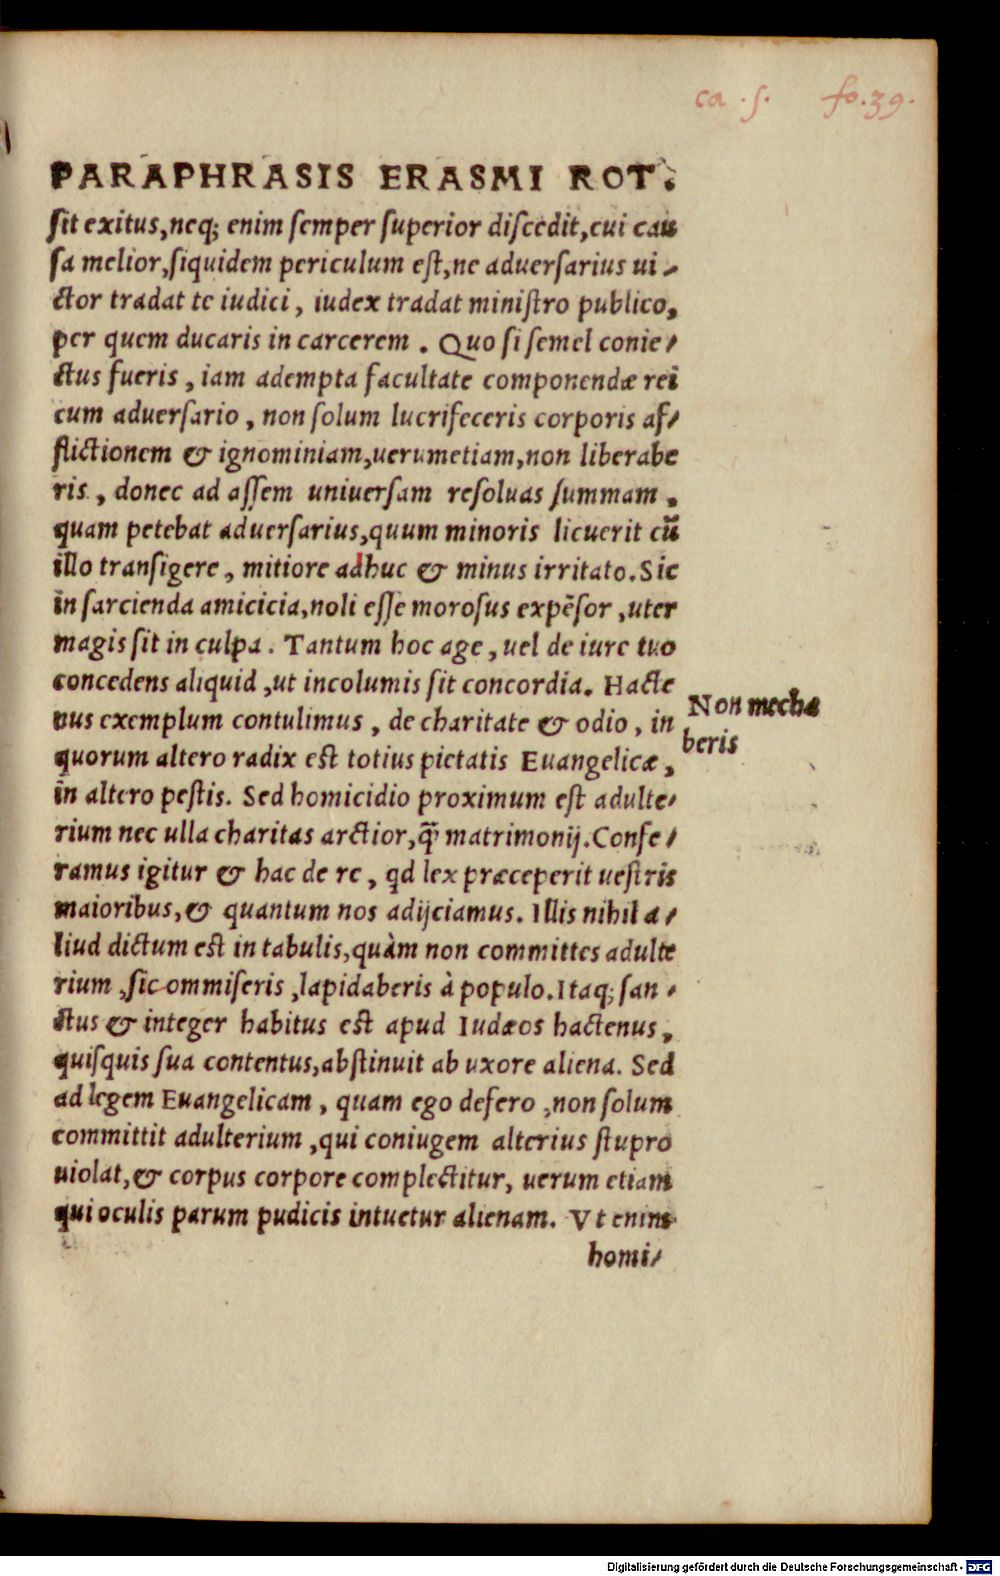 ca . 5. fo. 39.
PARAPHRASIS ERASMI ROT.
ſit exitus, neq; enim ſemper ſuperior diſcedit, cui cau
ſa melior, ſiquidem periculum eſt, ne aduerſarius ui-
ctor tradat te iudici, iudex tradat miniſtro publico,
per quem ducaris in carcerem. Quo ſi ſemel conie/
ctus fueris, iam adempta facultate componendæ rei
cum aduerſario, non ſolum lucrifeceris corporis af/
flictionem & ignominiam, uerumetiam, non liberabe
ris, donec ad aſſem uniuerſam reſoluas ſummam,
quam petebat aduerſarius, quum minoris licuerit cũ
illo tranſigere, mitiore adhuc & minus irritato. Sic
in ſarcienda amicicia, noli eſſe moroſus expẽſor, uter
magis ſit in culpa. Tantum hoc age, uel de iure tuo
concedens aliquid, ut incolumis ſit concordia. Hacte
nus exemplum contulimus, de charitate & odio, in
quorum altero radix eſt totius pietatis Euangelicæ,
in altero peſtis. Sed homicidio proximum eſt adulte/
rium nec ulla charitas arctior, q̃ matrimonij. Confe/
ramus igitur & hac de re, qd lex præceperit ueſtris
maioribus, & quantum nos adijciamus. Illis nihil a/
liud dictum eſt in tabulis, quàm non committes adulte
rium, ſic ommiſeris, lapidaberis à populo. Itaq; ſan/
ctus & integer habitus eſt apud Iudæos hactenus,
quiſquis ſua contentus, abſtinuit ab uxore aliena. Sed
ad legem Euangelicam, quam ego defero, non ſolum
committit adulterium, qui coniugem alterius ſtupro
uiolat, & corpus corpore complectitur, uerum etiam
qui oculis parum pudicis intuetur alienam. Vt enim
homi/
Non mecha
beris
Digitalisierung gefördert durch die Deutsche Forschungsgemeinschaft - DFG